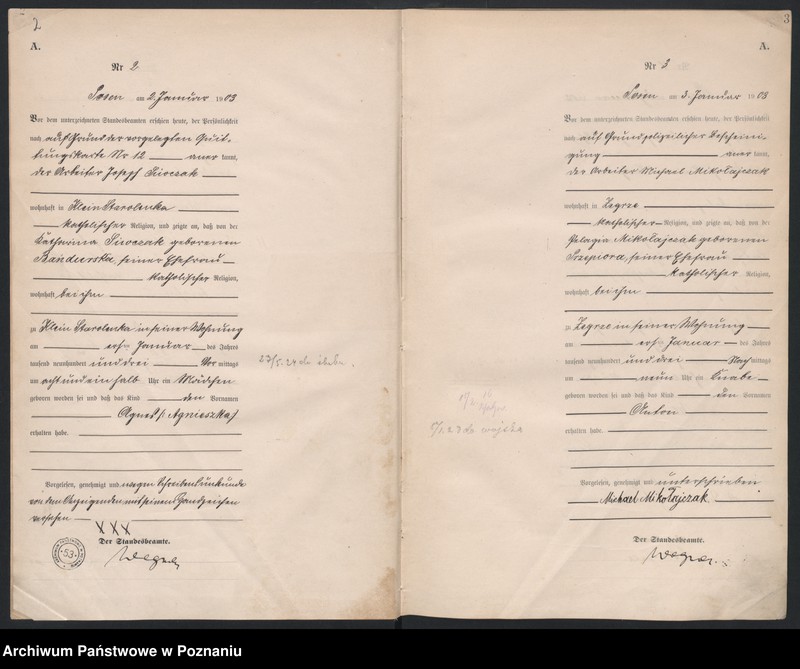 2
A.
Nr 2
Posen am 2. Januar 1903
Vor dem unterzeichneten Standesbeamten erschien heute, der Persönlichkeit
nach auf Grund der vorgelegten Quit-
tungskarte Nr 12 anerkannt,
der Arbeiter Joseph
wohnhaft in Klein Starolenka
katholischer Religion, und zeigte an, daß von der
Katharina geborenen
seiner Ehefrau
katholischer Religion,
wohnhaft bei ihm
zu Klein Starolenka in seiner Wohnung
am ersten Januar des Jahres
tausend neunhundert und drei Vormittags
um acht und ein halb Uhr ein Mädchen
geboren worden sei und daß das Kind den Vornamen
Agnes (: Agnieszka)
erhalten habe.
Vorgelesen, genehmigt und wegen Schreibensunkunde
von dem Anzeigenden mit seinem Handzeichen
versehen
XXX
Der Standesbeamte.
53
23/5. 24 do ślubu.
3
A.
Nr 3
Posen am 3. Januar 1903
Vor dem unterzeichneten Standesbeamten erschien heute, der Persönlichkeit
nach auf Grund polizeilicher Bescheini-
gung anerkannt,
der Arbeiter Michael Mikołajczak
wohnhaft in Zegrze
katholischer Religion, und zeigte an, daß von der
Pelagia Mikołajczak geborenen
seiner Ehefrau
katholischer Religion,
wohnhaft bei ihm
zu Zegrze in seiner Wohnung
am ersten Januar des Jahres
tausend neunhundert und drei Nachmittags
um neun Uhr ein Knabe
geboren worden sei und daß das Kind den Vornamen
Anton
erhalten habe.
do wojska
Vorgelesen, genehmigt und unterschrieben
Michael Mikołajczak
Der Standesbeamte.
Archiwum Państwowe w Poznaniu